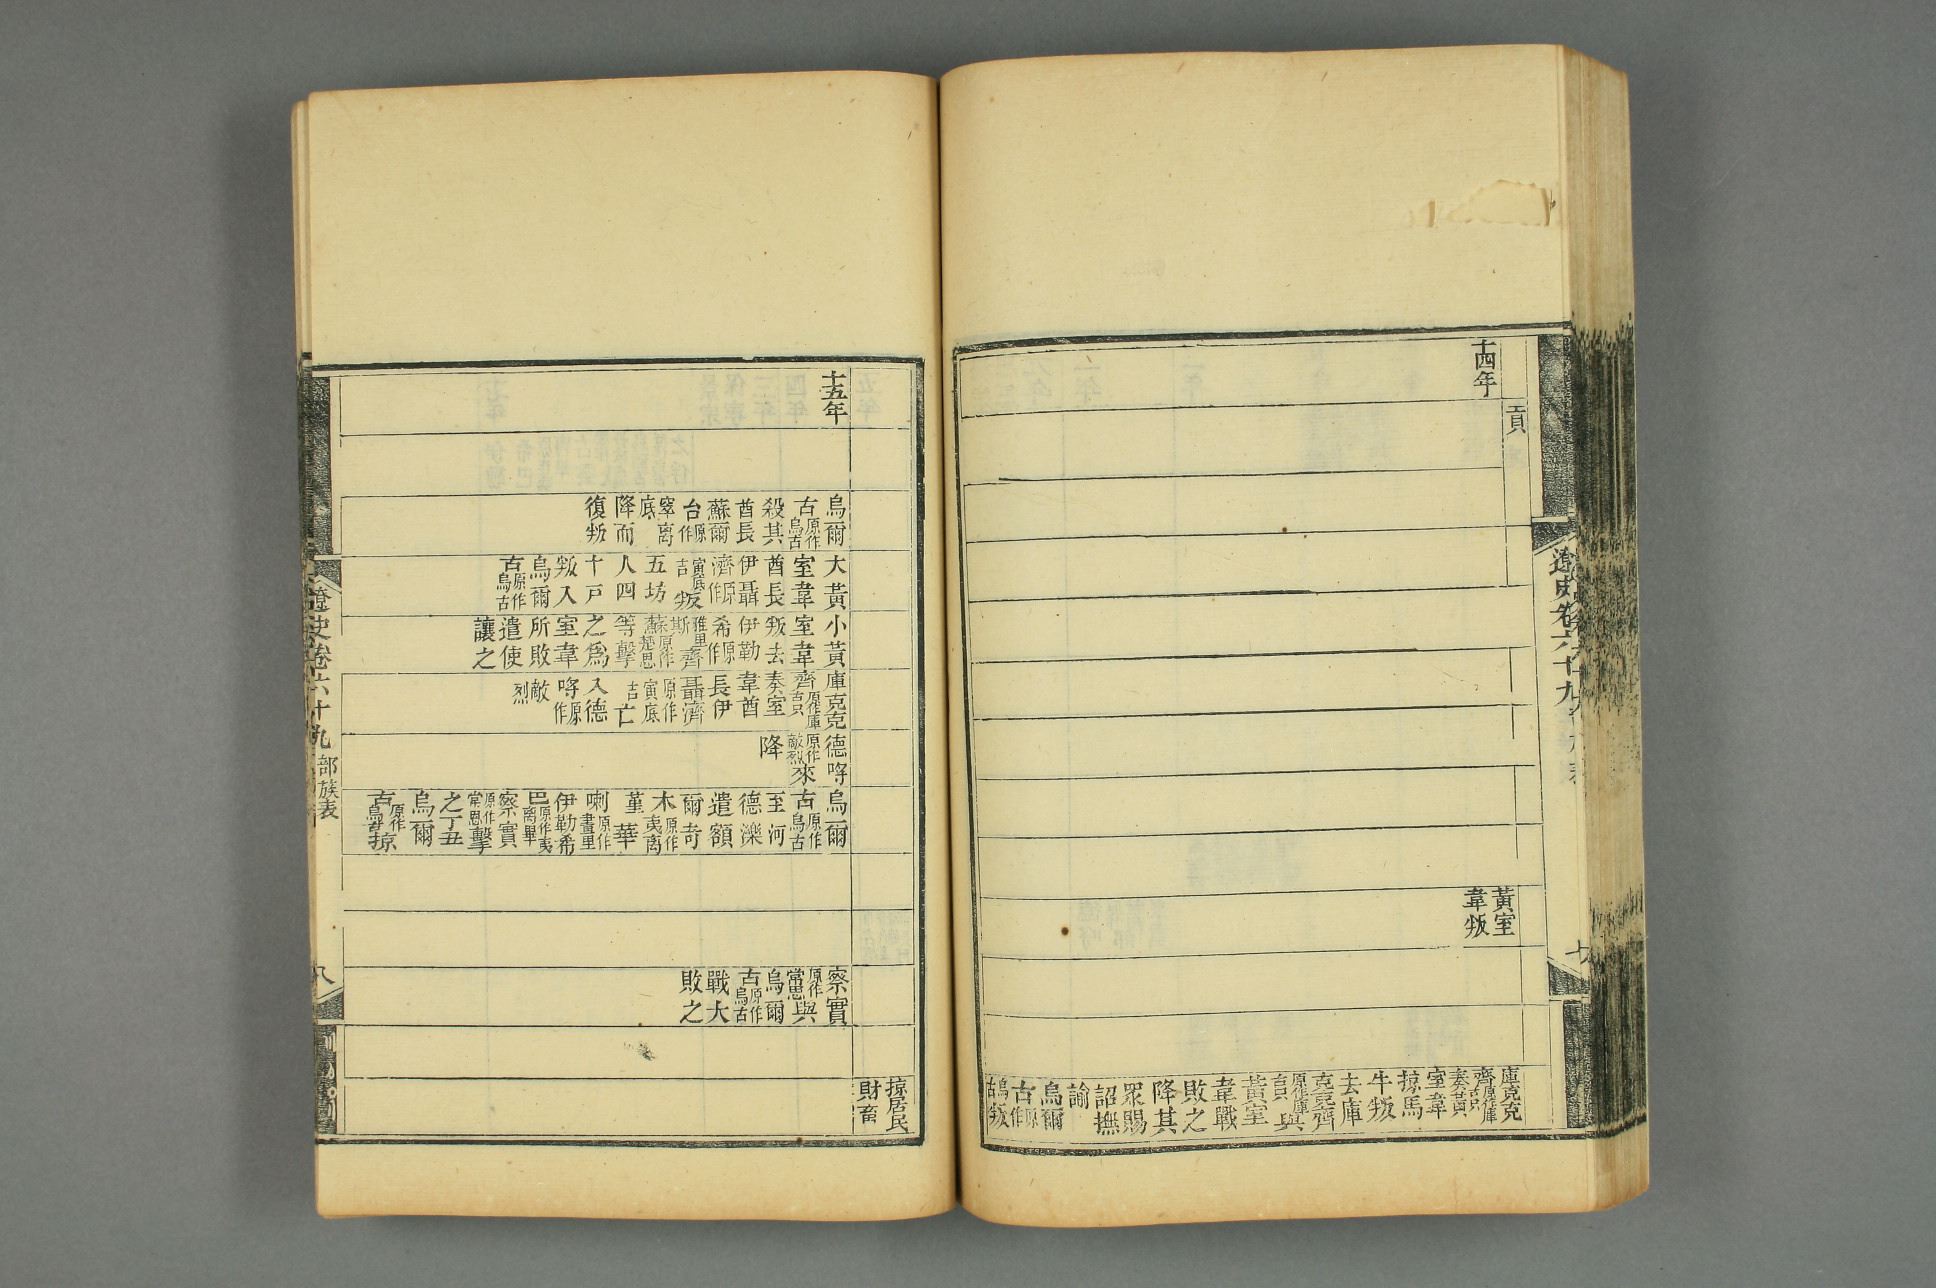 貢
十四年
黃室
韋叛
庫克克
齊原作庫古只
奏黃
室韋
掠馬
牛叛
去庫
克克齊
原作庫與
黃室
韋戰
敗之
降其
眾賜
詔撫
諭
烏爾
古原作
烏古叛
遼史卷六十九
七
掠居民
財畜
十五年
烏爾
古原作烏古
殺其
酋長
蘇爾
台原作
窣离底
降而
復叛
大黃
室韋
酋長
伊聶
濟原作
寅底吉叛
五坊
人四
十戶
叛入
烏爾
古原作烏古
小黃
室韋
叛去
伊勒
希原作
雅里斯齊
蘇原作楚思
等擊
之為
室韋
所敗
遣使
讓之
庫克克
齊原作庫古只
奏室
韋酋
長伊
聶濟
原作寅底吉亡
入德
哷原作
敵烈
德哷
原作敵烈來
降
烏爾
古原作烏古
至河
德濼
遣額
爾奇
木原作夷离
堇華
喇原作畫里
伊勒希
巴原作夷离畢
察實
原作常思擊
之丁丑
烏爾
古原作烏古掠
察實
原作常思與
烏爾
古原作烏古
戰大
敗之
遼史卷六十九 部族表
八